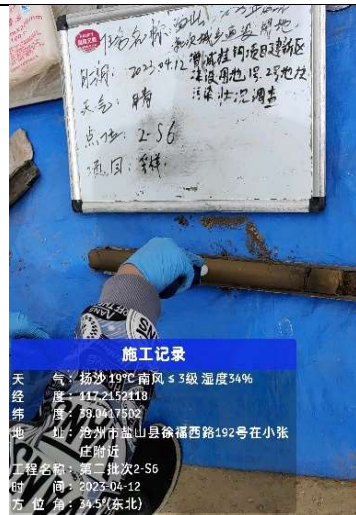 场名称:盐山
和城乡建设用地
日期:2023.04.12 增减挂钩项目建新区
建设用地1号、2号地块
天气:晴 污染状况调查
点位:2-S6
项目:采样
施工记录
天气:扬沙 19℃ 南风 ≤ 3级 湿度34%
经度:117.2152118
纬度:38.0417502
地址:沧州市盐山县徐福西路192号在小张
庄附近
工程名称:第二批次2-S6
时间:2023-04-12
方位角:34.5°(东北)